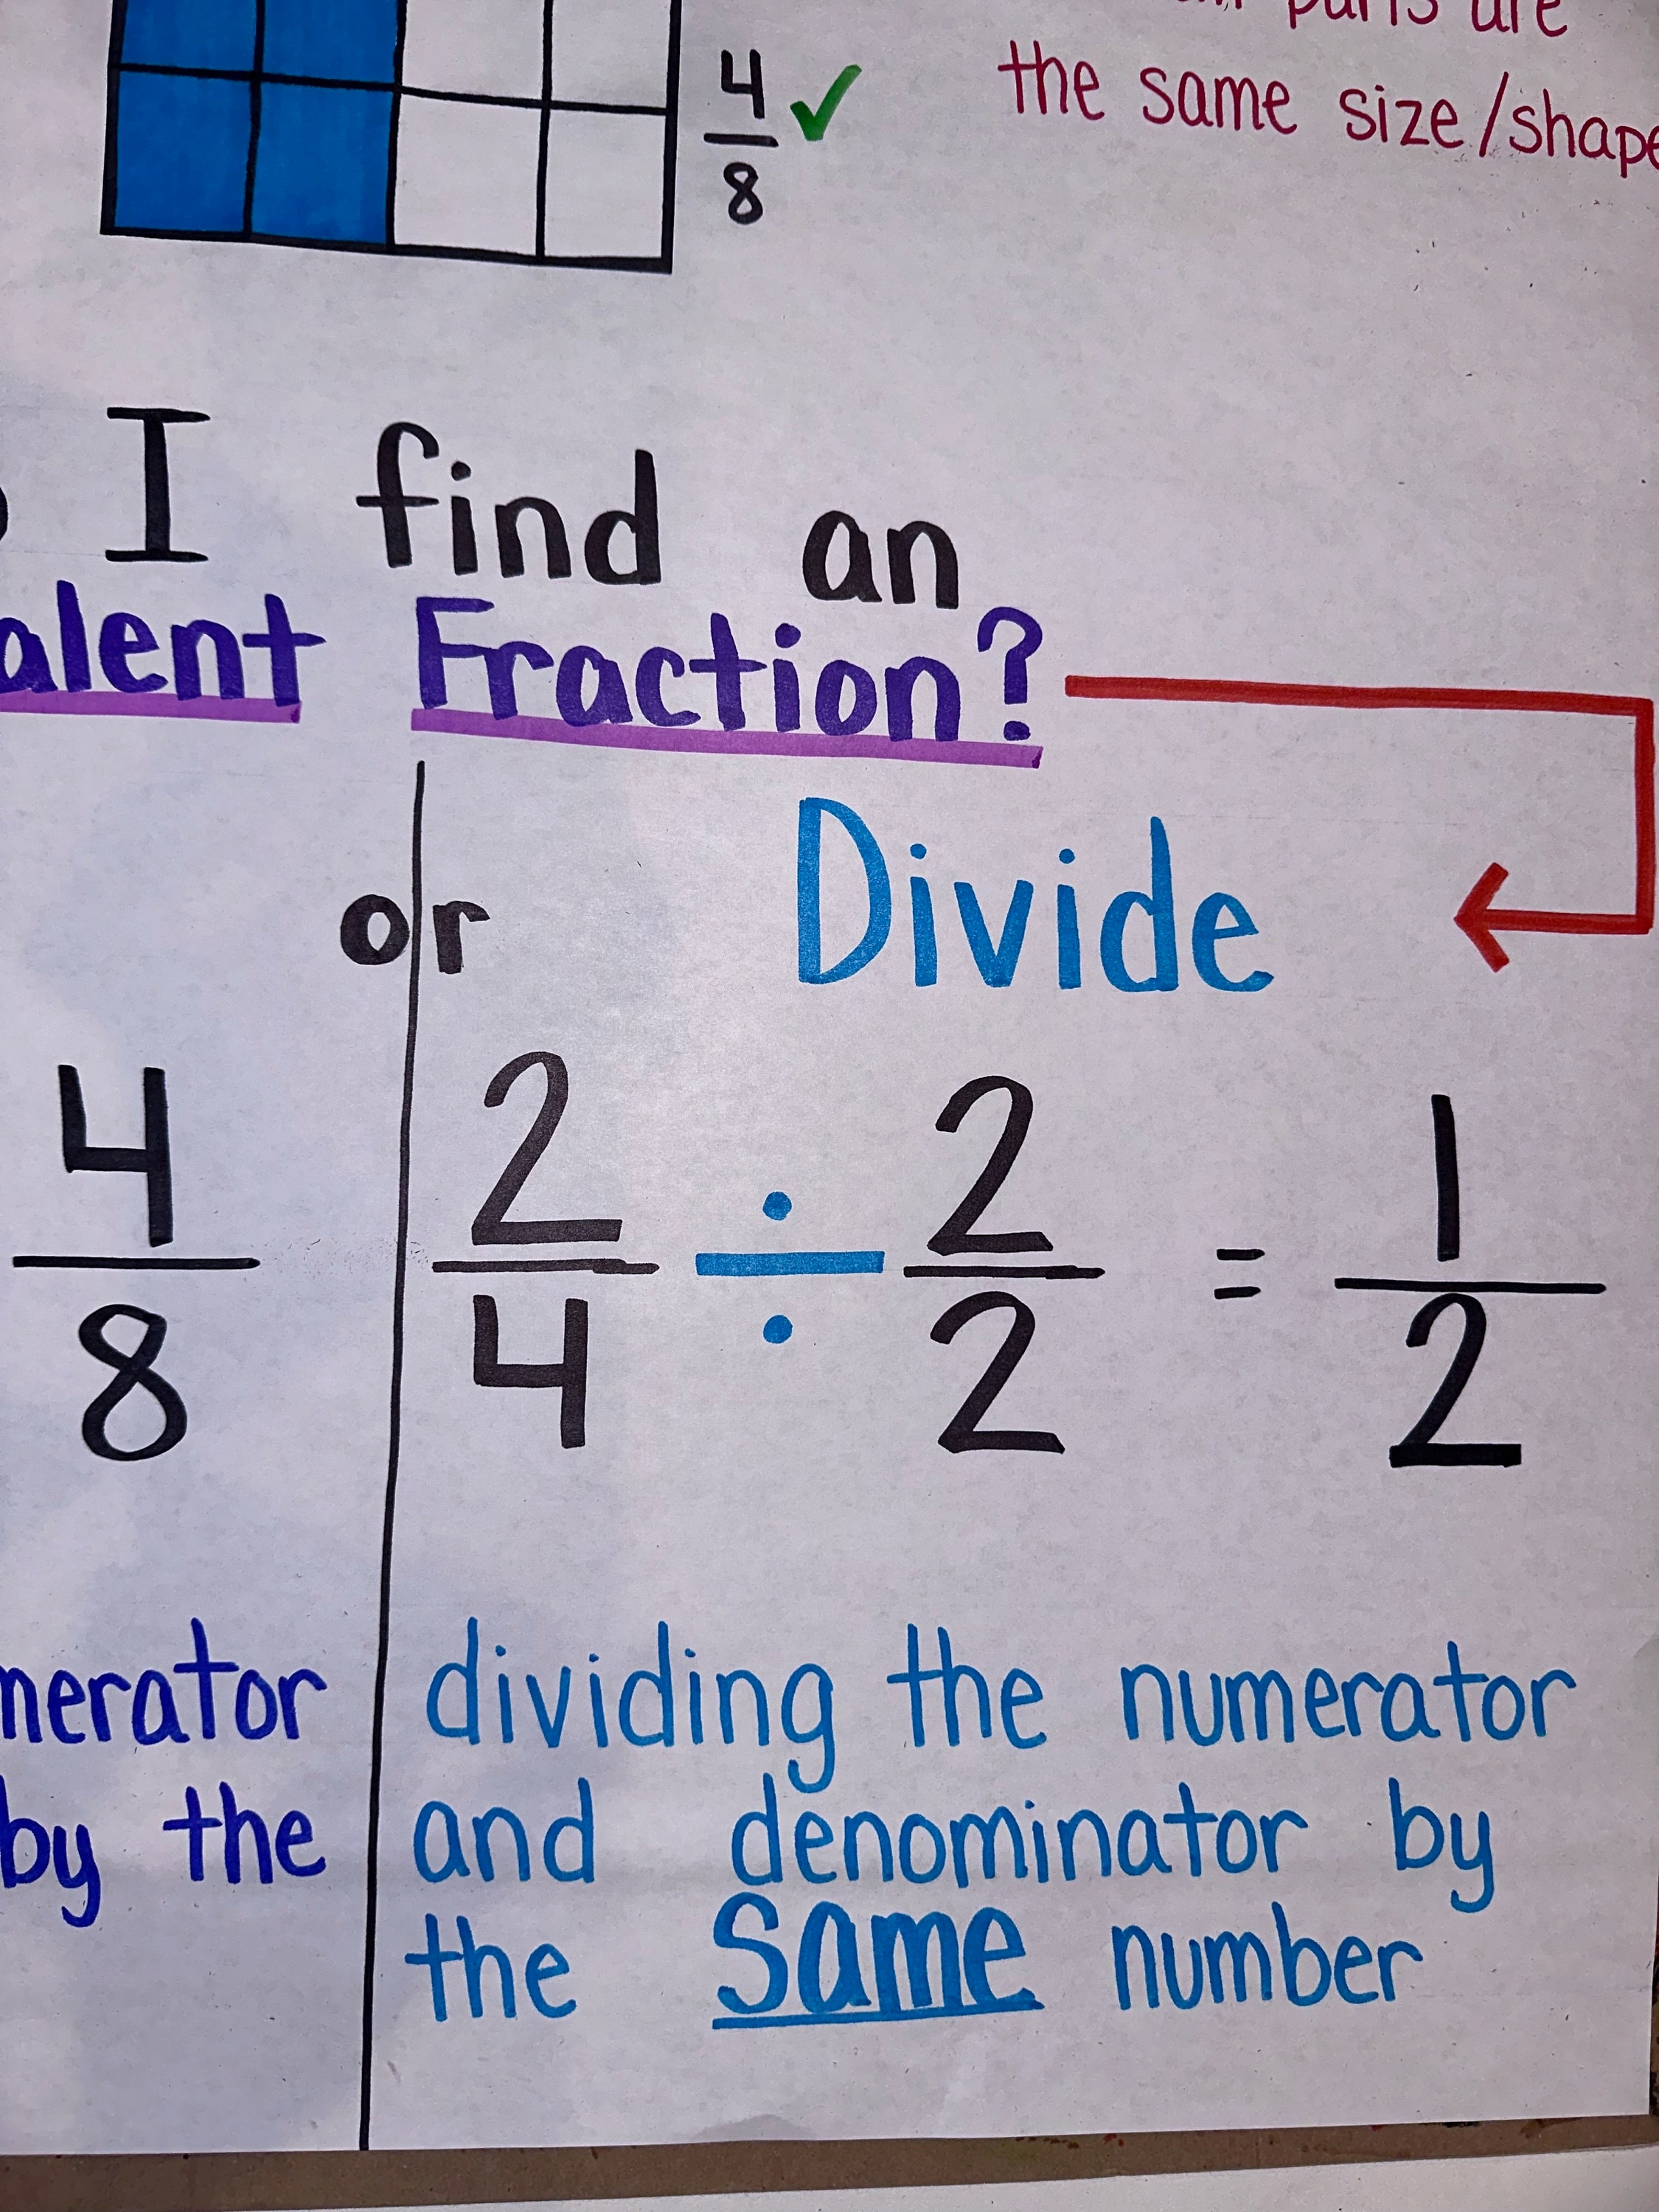 parts are
the same size/shape
4/8 ✓
I find an
Fraction?
or Divide
4/8
2/4 ÷ 2/2 = 1/2
by the
dividing the numerator
and denominator by
the same number